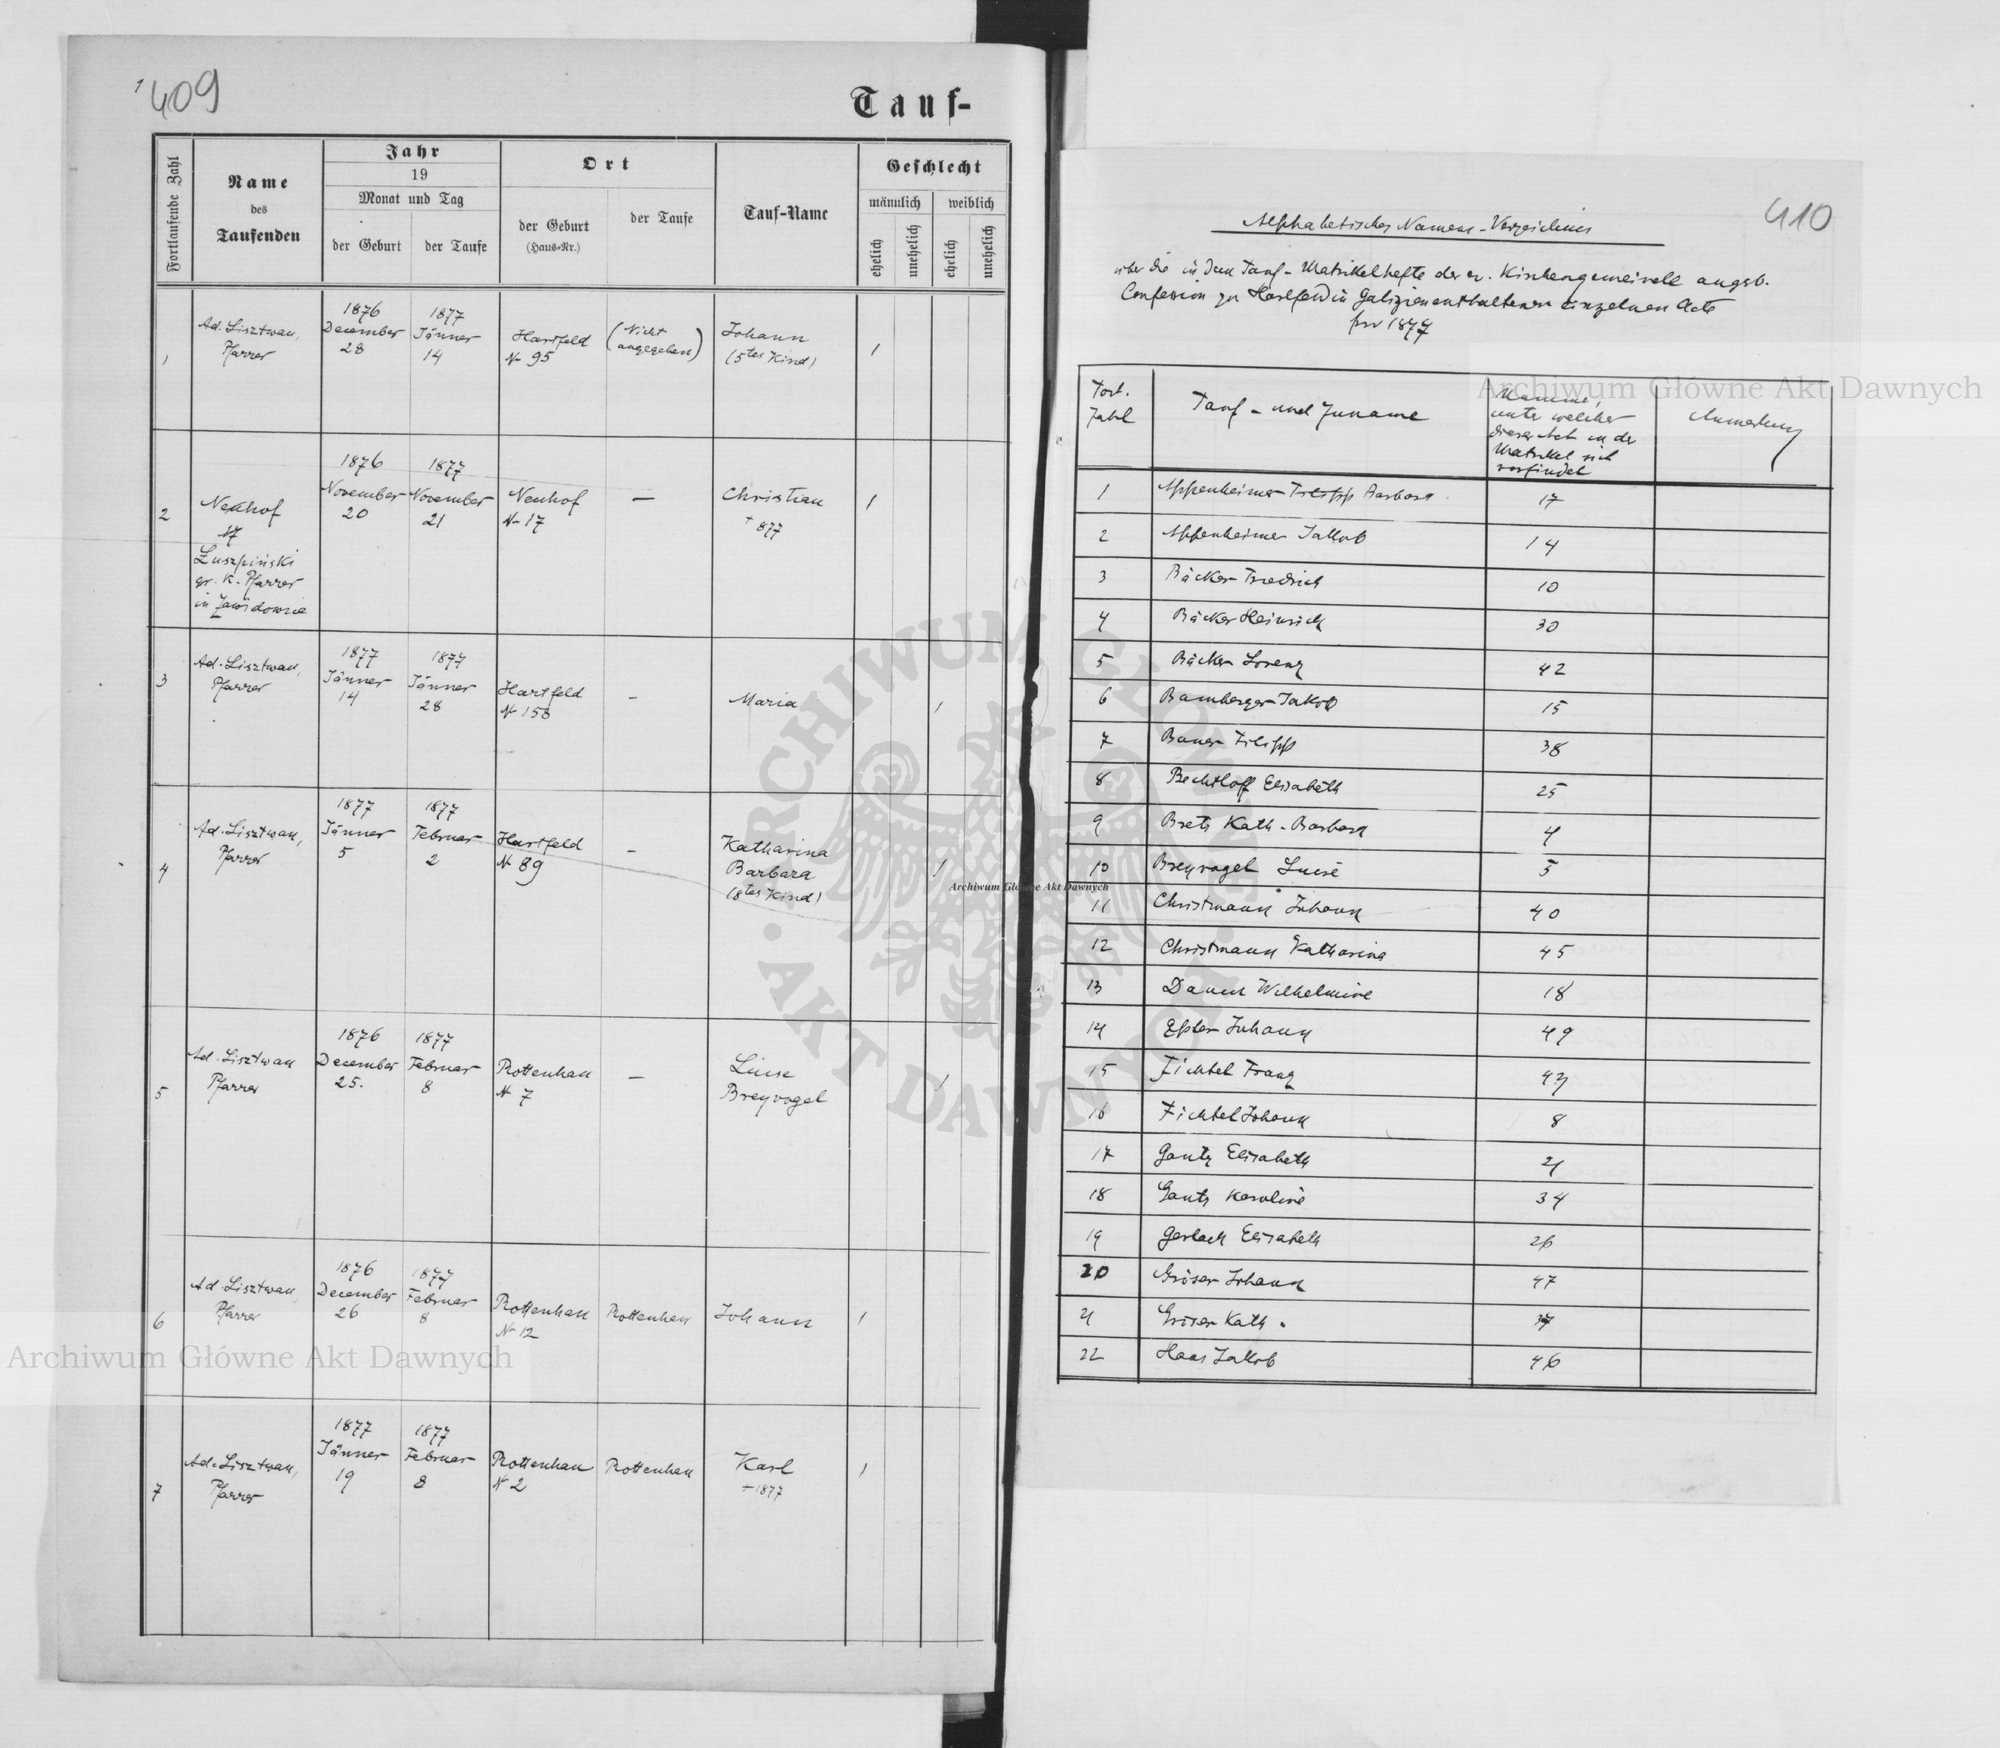 409
Tauf-
Fortlaufende Zahl
Name
des
Taufenden
Jahr
19
Monat und Tag
der Geburt
der Taufe
Ort
der Geburt
(Haus-Nr.)
der Taufe
Tauf-Name
Geschlecht
männlich
weiblich
ehelich
unehelich
ehelich
unehelich
1
Ad. Lisztwan,
Pfarrer
1876
December
28
1877
Jänner
14
Hartfeld
N 95
(Nicht
angegeben)
Johann
(5tes Kind)
1
2
Neuhof
17
Łuszpiński
gr. k. Pfarrer
in Zawidowie
1876
November
20
1877
November
21
Neuhof
N 17
—
Christian
+ 877
1
3
Ad. Lisztwan,
Pfarrer
1877
Jänner
14
1877
Jänner
28
Hartfeld
N 158
—
Maria
1
4
Ad. Lisztwan,
Pfarrer
1877
Jänner
5
1877
Februar
2
Hartfeld
N 89
—
Katharina
Barbara
(8tes Kind)
1
5
Ad. Lisztwan
Pfarrer
1876
December
25.
1877
Februar
8
Rottenhan
N 7
—
Luise
Breyvogel
1
6
Ad. Lisztwan,
Pfarrer
1876
December
26
1877
Februar
8
Rottenhan
N 12
Rottenhan
Johann
1
7
Ad. Lisztwan,
Pfarrer
1877
Jänner
19
1877
Februar
8
Rottenhan
N 2
Rottenhan
Karl
+ 1877
1
410
Alphabetisches Namens-Verzeichnis
über die in dem Tauf-Matrikelhefte der ev. Kirchengemeinde augsb.
Confession zu Hartfeld in Galizien enthaltenen einzelnen Acte
pro 1877
Fort.
Zahl
Tauf- und Zuname
Nummer,
unter welcher
dieser Act in der
Matrikel sich
vorfindet
Anmerkung
1 Appenheimer Filipp Barbara 17
2 Appenheimer Jakob 14
3 Bäcker Friedrich 10
4 Bäcker Heinrich 30
5 Bäcker Lorenz 42
6 Bamberger Jakob 15
7 Bauer Filipp 38
8 Bechtloff Elisabeth 25
9 Bretz Kath. Barbara 4
10 Breyvogel Luise 5
11 Christmann Johann 40
12 Christmann Katharina 45
13 Daum Wilhelmine 18
14 Johann 49
15 Fichtel Franz 43
16 Fichtel Johann 8
17 Gantz Elisabeth 21
18 Gantz Karoline 34
19 Gerlach Elisabeth 26
20 Gröser Johann 47
21 Gröser Kath. 37
22 Haas Jakob 46
Archiwum Główne Akt Dawnych
Archiwum Główne Akt Dawnych
Archiwum Główne Akt Dawnych
ARCHIWUM GŁÓWNE
AKT DAWNYCH